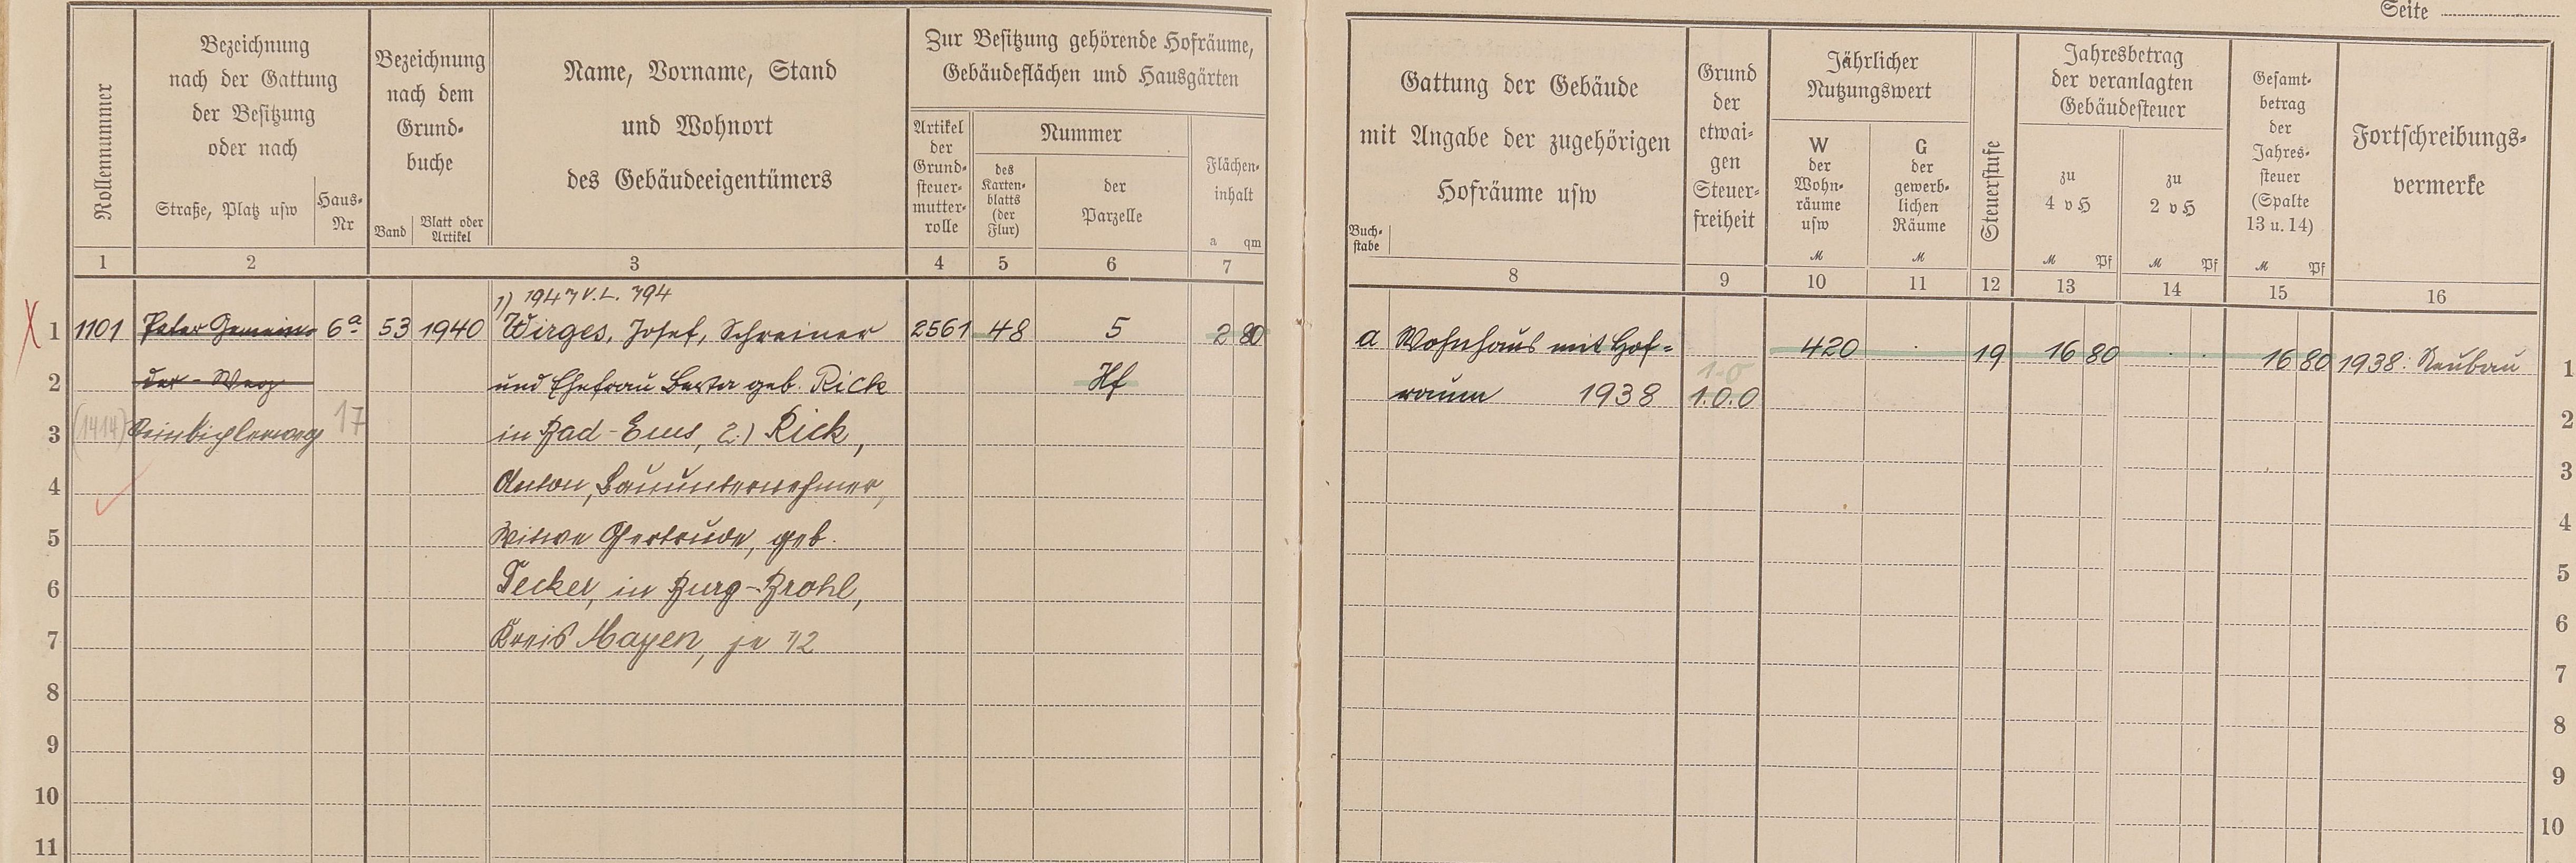 Seite
Rollennummer
Bezeichnung
nach der Gattung
der Besitzung
oder nach
Straße, Platz usw
Haus-
Nr
Bezeichnung
nach dem
Grund-
buche
Band
Blatt oder
Artikel
Name, Vorname, Stand
und Wohnort
des Gebäudeeigentümers
Zur Besitzung gehörende Hofräume,
Gebäudeflächen und Hausgärten
Artikel
der
Grund-
steuer-
mutter-
rolle
Nummer
des
Karten-
blatts
(der
Flur)
der
Parzelle
Flächen-
inhalt
a qm
Gattung der Gebäude
mit Angabe der zugehörigen
Hofräume usw
Buch-
stabe
Grund
der
etwai-
gen
Steuer-
freiheit
Jährlicher
Nutzungswert
W
der
Wohn-
räume
usw
M
G
der
gewerb-
lichen
Räume
M
Steuerstufe
Jahresbetrag
der veranlagten
Gebäudesteuer
zu
4 v H
M Pf
zu
2 v H
M Pf
Gesamt-
betrag
der
Jahres-
steuer
(Spalte
13 u. 14)
M Pf
Fortschreibungs-
vermerke
1 2 3 4 5 6 7 8 9 10 11 12 13 14 15 16
1) 1947 V.L. 794
1 1101 Peter Gemein- 6a 53 1940 Wirges, Josef, Schreiner 2561 48 5 2 80 a Wohnhaus mit Hof- 420 . 19 16 80 . . 16 80 1938: Neubau 1
2 der-Weg und Ehefrau Berta geb. Rick Hf raum 1938 1.0.0 2
3 (1414) 17 in Bad-Ems, 2.) Rick, 3
4 Anton, Bauunternehmer, 4
5 Witwe Gertrude, geb. 5
6 Tecker, in Burg-Brohl, 6
7 Kreis Mayen, je 1/2 7
8 8
9 9
10 10
11